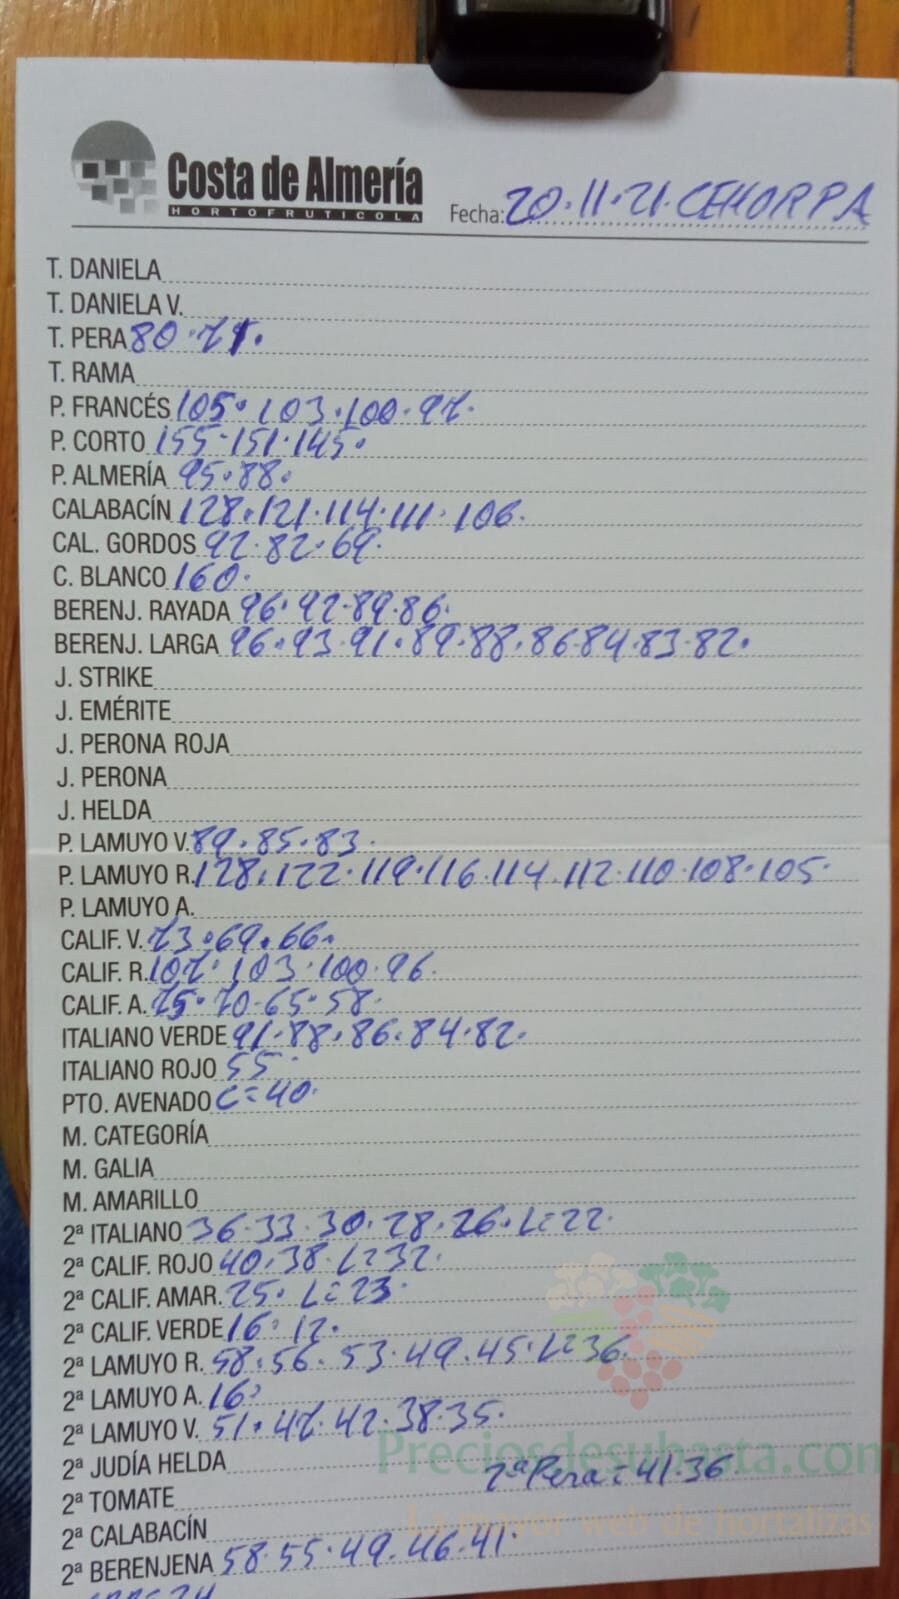 Costa de Almería
HORTOFRUTICOLA
Fecha: 20.11.21. CEHORPA
T. DANIELA
T. DANIELA V.
T. PERA 80.71.
T. RAMA
P. FRANCÉS 105.103.100.97.
P. CORTO 155.151.145.
P. ALMERÍA 95.88.
CALABACÍN 128.121.114.111.106.
CAL. GORDOS 92.82.69.
C. BLANCO 160.
BERENJ. RAYADA 96.92.89.86.
BERENJ. LARGA 96.93.91.89.88.86.84.83.82.
J. STRIKE
J. EMÉRITE
J. PERONA ROJA
J. PERONA
J. HELDA
P. LAMUYO V. 89.85.83.
P. LAMUYO R. 128.122.119.116.114.112.110.108.105.
P. LAMUYO A.
CALIF. V. 73.69.66.
CALIF. R. 107.103.100.96.
CALIF. A. 75.70.65.58.
ITALIANO VERDE 91.88.86.84.82.
ITALIANO ROJO 55
PTO. AVENADO C=40.
M. CATEGORÍA
M. GALIA
M. AMARILLO
2ª ITALIANO 36.33.30.28.26.L=22.
2ª CALIF. ROJO 40.38.L=32.
2ª CALIF. AMAR. 25.L=23.
2ª CALIF. VERDE 16.12.
2ª LAMUYO R. 58.56.53.49.45.L=36.
2ª LAMUYO A. 16.
2ª LAMUYO V. 51.47.42.38.35.
Preciosdesubasta.com
2ª JUDÍA HELDA
2ª Pera=41.36.
2ª TOMATE
La mayor web de hortalizas
2ª CALABACÍN
2ª BERENJENA 58.55.49.46.41.